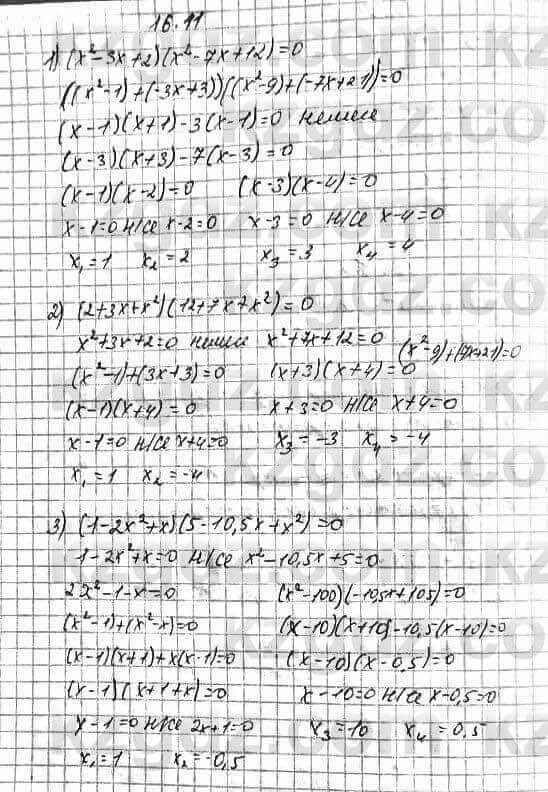 16.11
1) (x²-3x+2)(x²-7x+12)=0
((x²-1)+(-3x+3))((x²-9)+(-7x+21))=0
(x-1)(x+1)-3(x-1)=0 немесе
(x-3)(x+3)-7(x-3)=0
(x-1)(x-2)=0 (x-3)(x-4)=0
x-1=0 н/се x-2=0 x-3=0 н/се x-4=0
x₁=1 x₂=2 x₃=3 x₄=4
2) (2+3x+x²)(12+7x+x²)=0
x²+3x+2=0 немесе x²+7x+12=0 (x²-9)+(7x+21)=0
(x²-1)+(3x+3)=0 (x+3)(x+4)=0
(x-1)(x+4)=0 x+3=0 н/се x+4=0
x-1=0 н/се x+4=0 x₃=-3 x₄=-4
x₁=1 x₂=-4
3) (1-2x²+x)(5-10,5x+x²)=0
1-2x²+x=0 н/се x²-10,5x+5=0
2x²-1-x=0 (x²-100)(-10,5x+105)=0
(x²-1)+(x²-x)=0 (x-10)(x+10)-10,5(x-10)=0
(x-1)(x+1)+x(x-1)=0 (x-10)(x-0,5)=0
(x-1)(x+1+x)=0 x-10=0 н/се x-0,5=0
x-1=0 н/се 2x+1=0 x₃=10 x₄=0,5
x₁=1 x₂=-0,5